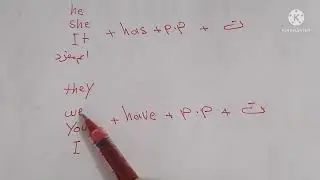 Made with KINEMASTER
he
she
It + has + p.p + ت
they
we
You + have + p.p + ت
I